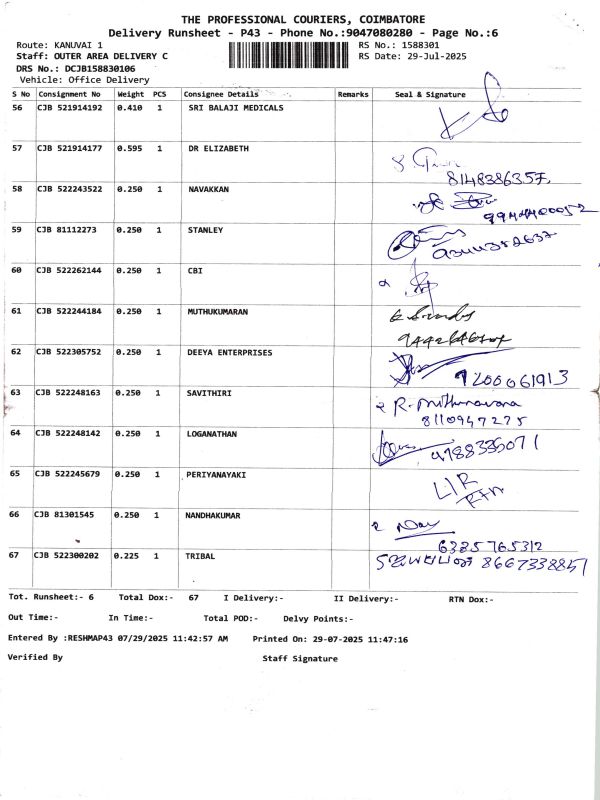 THE PROFESSIONAL COURIERS, COIMBATORE
Delivery Runsheet - P43 - Phone No.:9047080280 - Page No.:6
Route: KANUVAI 1
RS No.: 1588301
Staff: OUTER AREA DELIVERY C
RS Date: 29-Jul-2025
DRS No.: DCJB158830106
Vehicle: Office Delivery
S No Consignment No Weight PCS Consignee Details Remarks Seal & Signature
56 CJB 521914192 0.410 1 SRI BALAJI MEDICALS
57 CJB 521914177 0.595 1 DR ELIZABETH
8148386357
58 CJB 522243522 0.250 1 NAVAKKAN
9944400052
59 CJB 81112273 0.250 1 STANLEY
60 CJB 522262144 0.250 1 CBI
61 CJB 522244184 0.250 1 MUTHUKUMARAN
62 CJB 522305752 0.250 1 DEEYA ENTERPRISES
9200061913
63 CJB 522248163 0.250 1 SAVITHIRI
8110947275
64 CJB 522248142 0.250 1 LOGANATHAN
9788335071
65 CJB 522245679 0.250 1 PERIYANAYAKI
L/R
RTN
66 CJB 81301545 0.250 1 NANDHAKUMAR
6385765312
67 CJB 522300202 0.225 1 TRIBAL
8667338851
Tot. Runsheet:- 6 Total Dox:- 67 I Delivery:- II Delivery:- RTN Dox:-
Out Time:- In Time:- Total POD:- Delvy Points:-
Entered By :RESHMAP43 07/29/2025 11:42:57 AM Printed On: 29-07-2025 11:47:16
Verified By Staff Signature